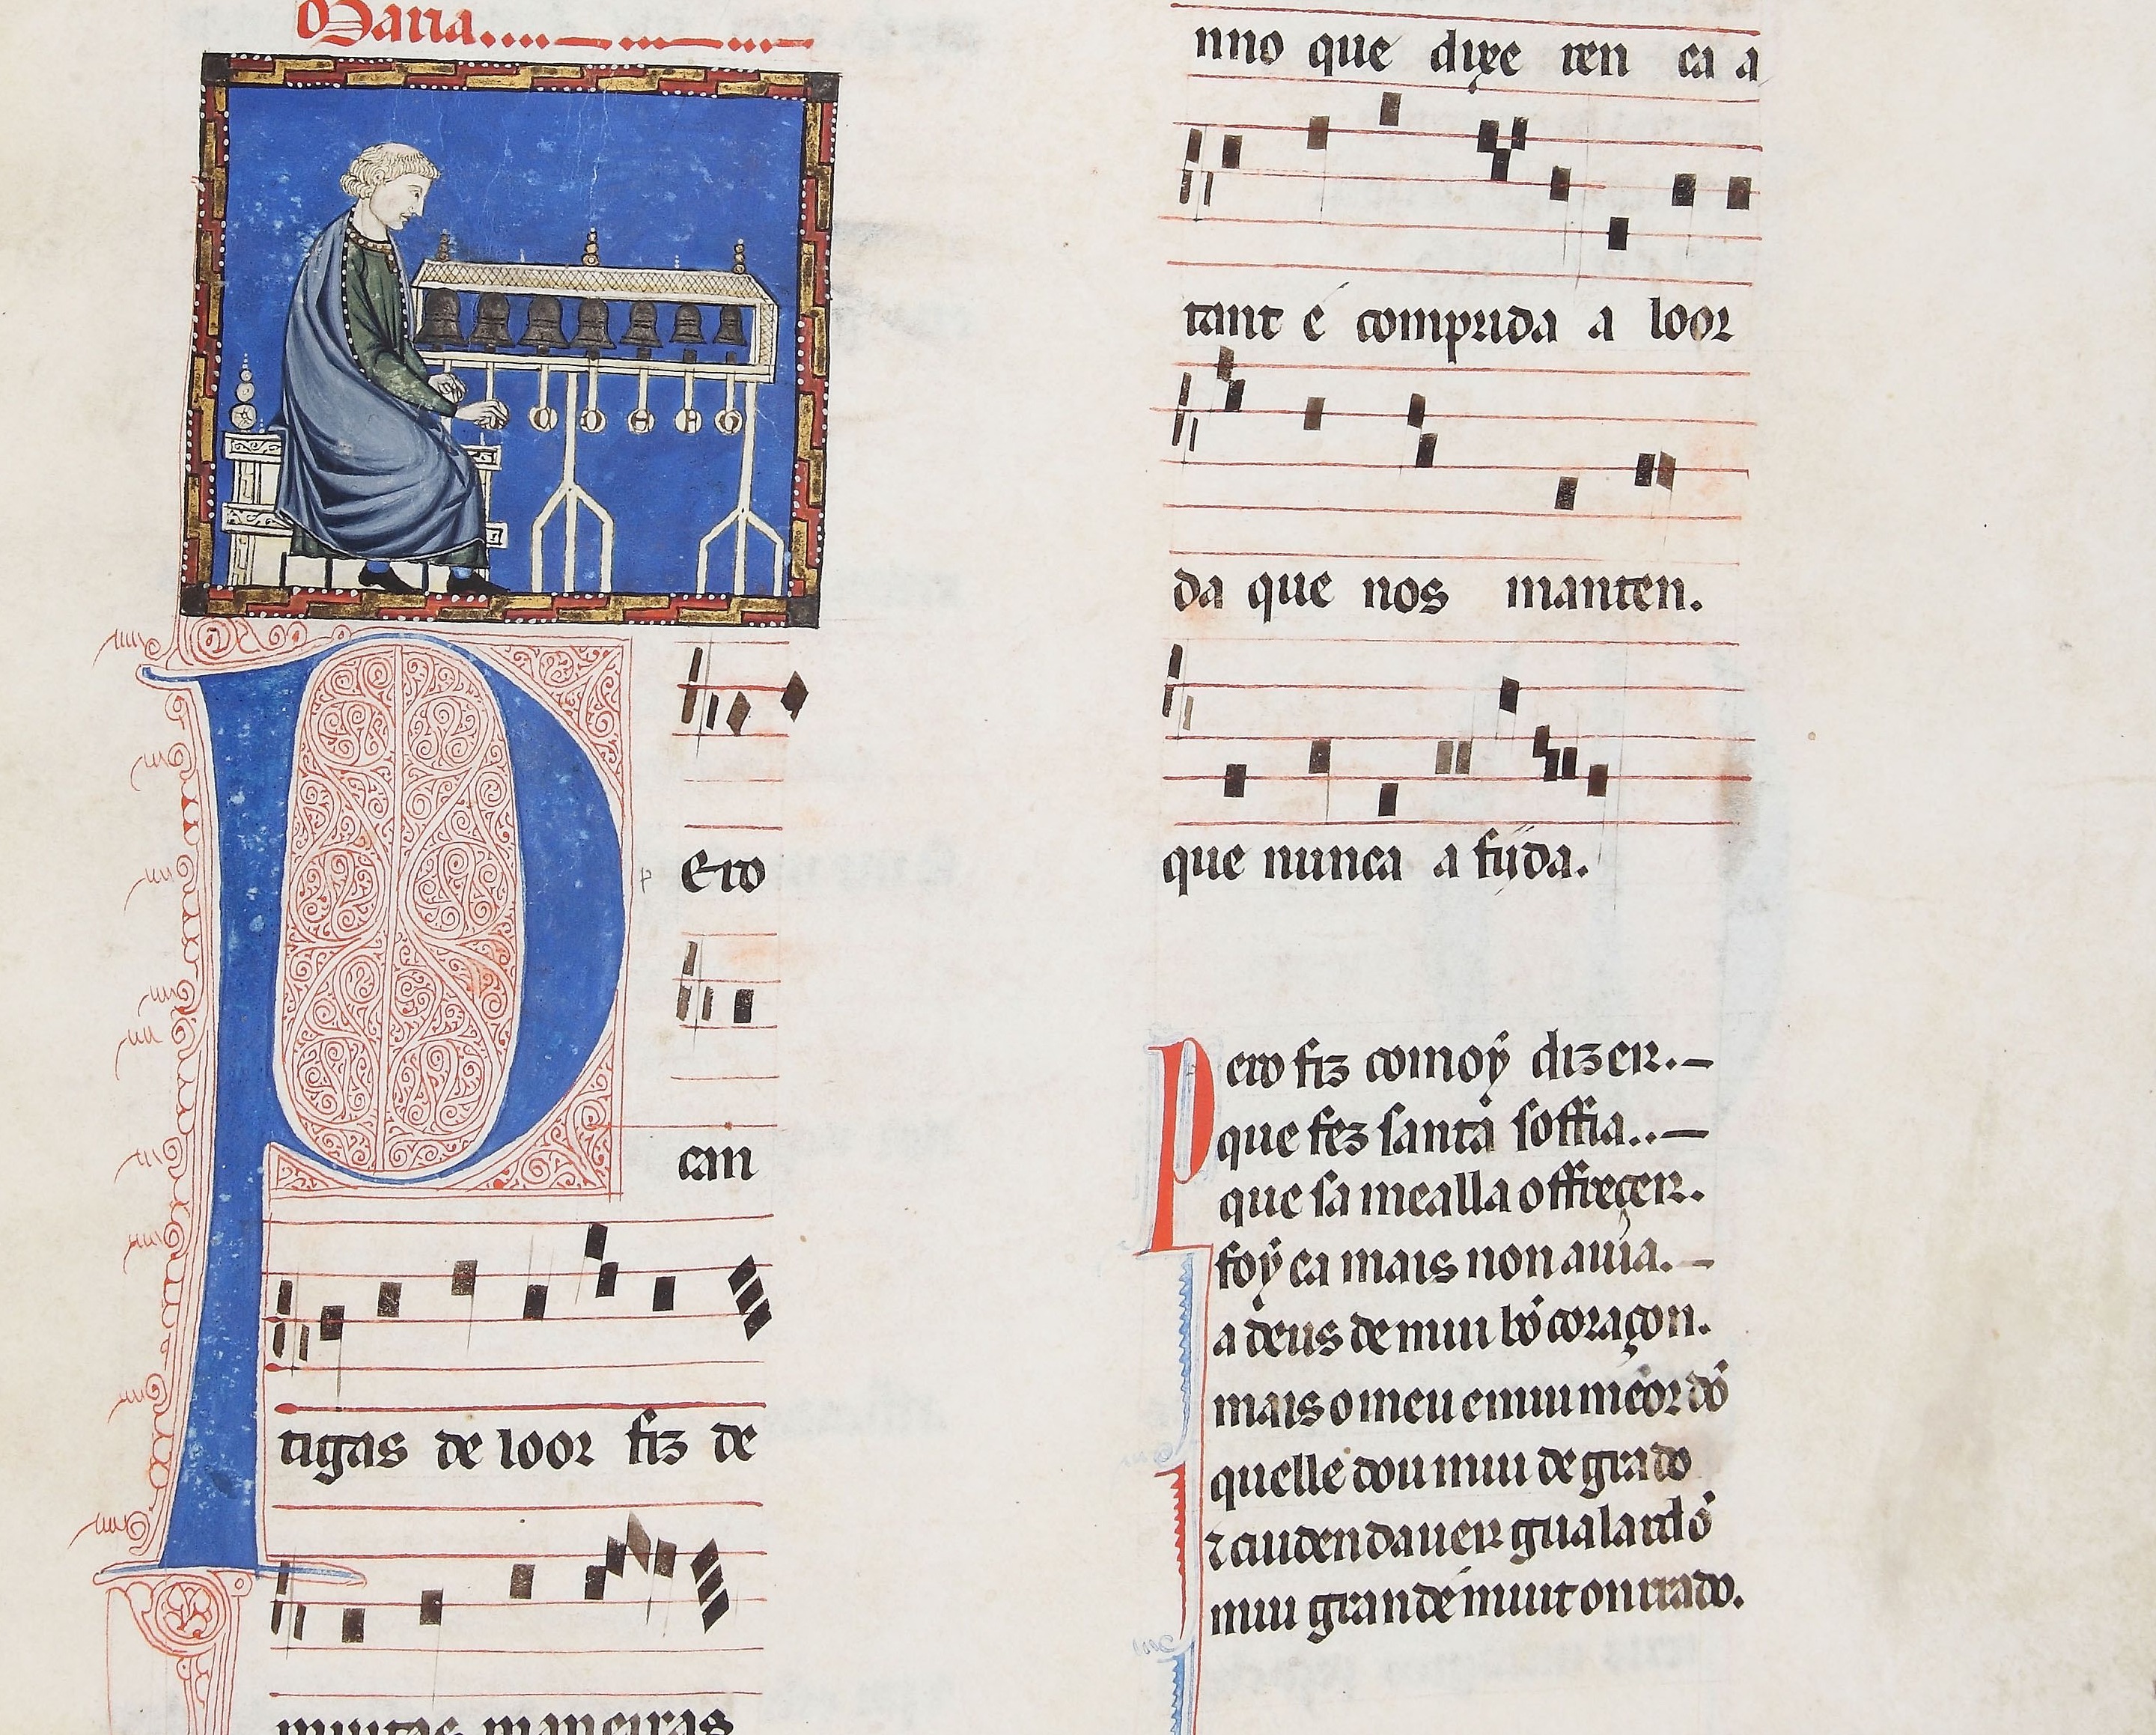 Maria
Ero
can
tigas de loor fiz de
muitas maneiras
nno que dixe ren ca a
tant é comprida a loor
da que nos manten.
que nunca a fijda.
Pero fiz comoẏ dizer.
que fez santa soffia..
que sa mealla offreçer.
foẏ ca mais non auia.
a deus de mui bõ coraçon.
mais o meu e mui mẽor dõ
quelle dou mui de grado
⁊ cuiden dauer gualardõ
mui grandé muit onrrado.